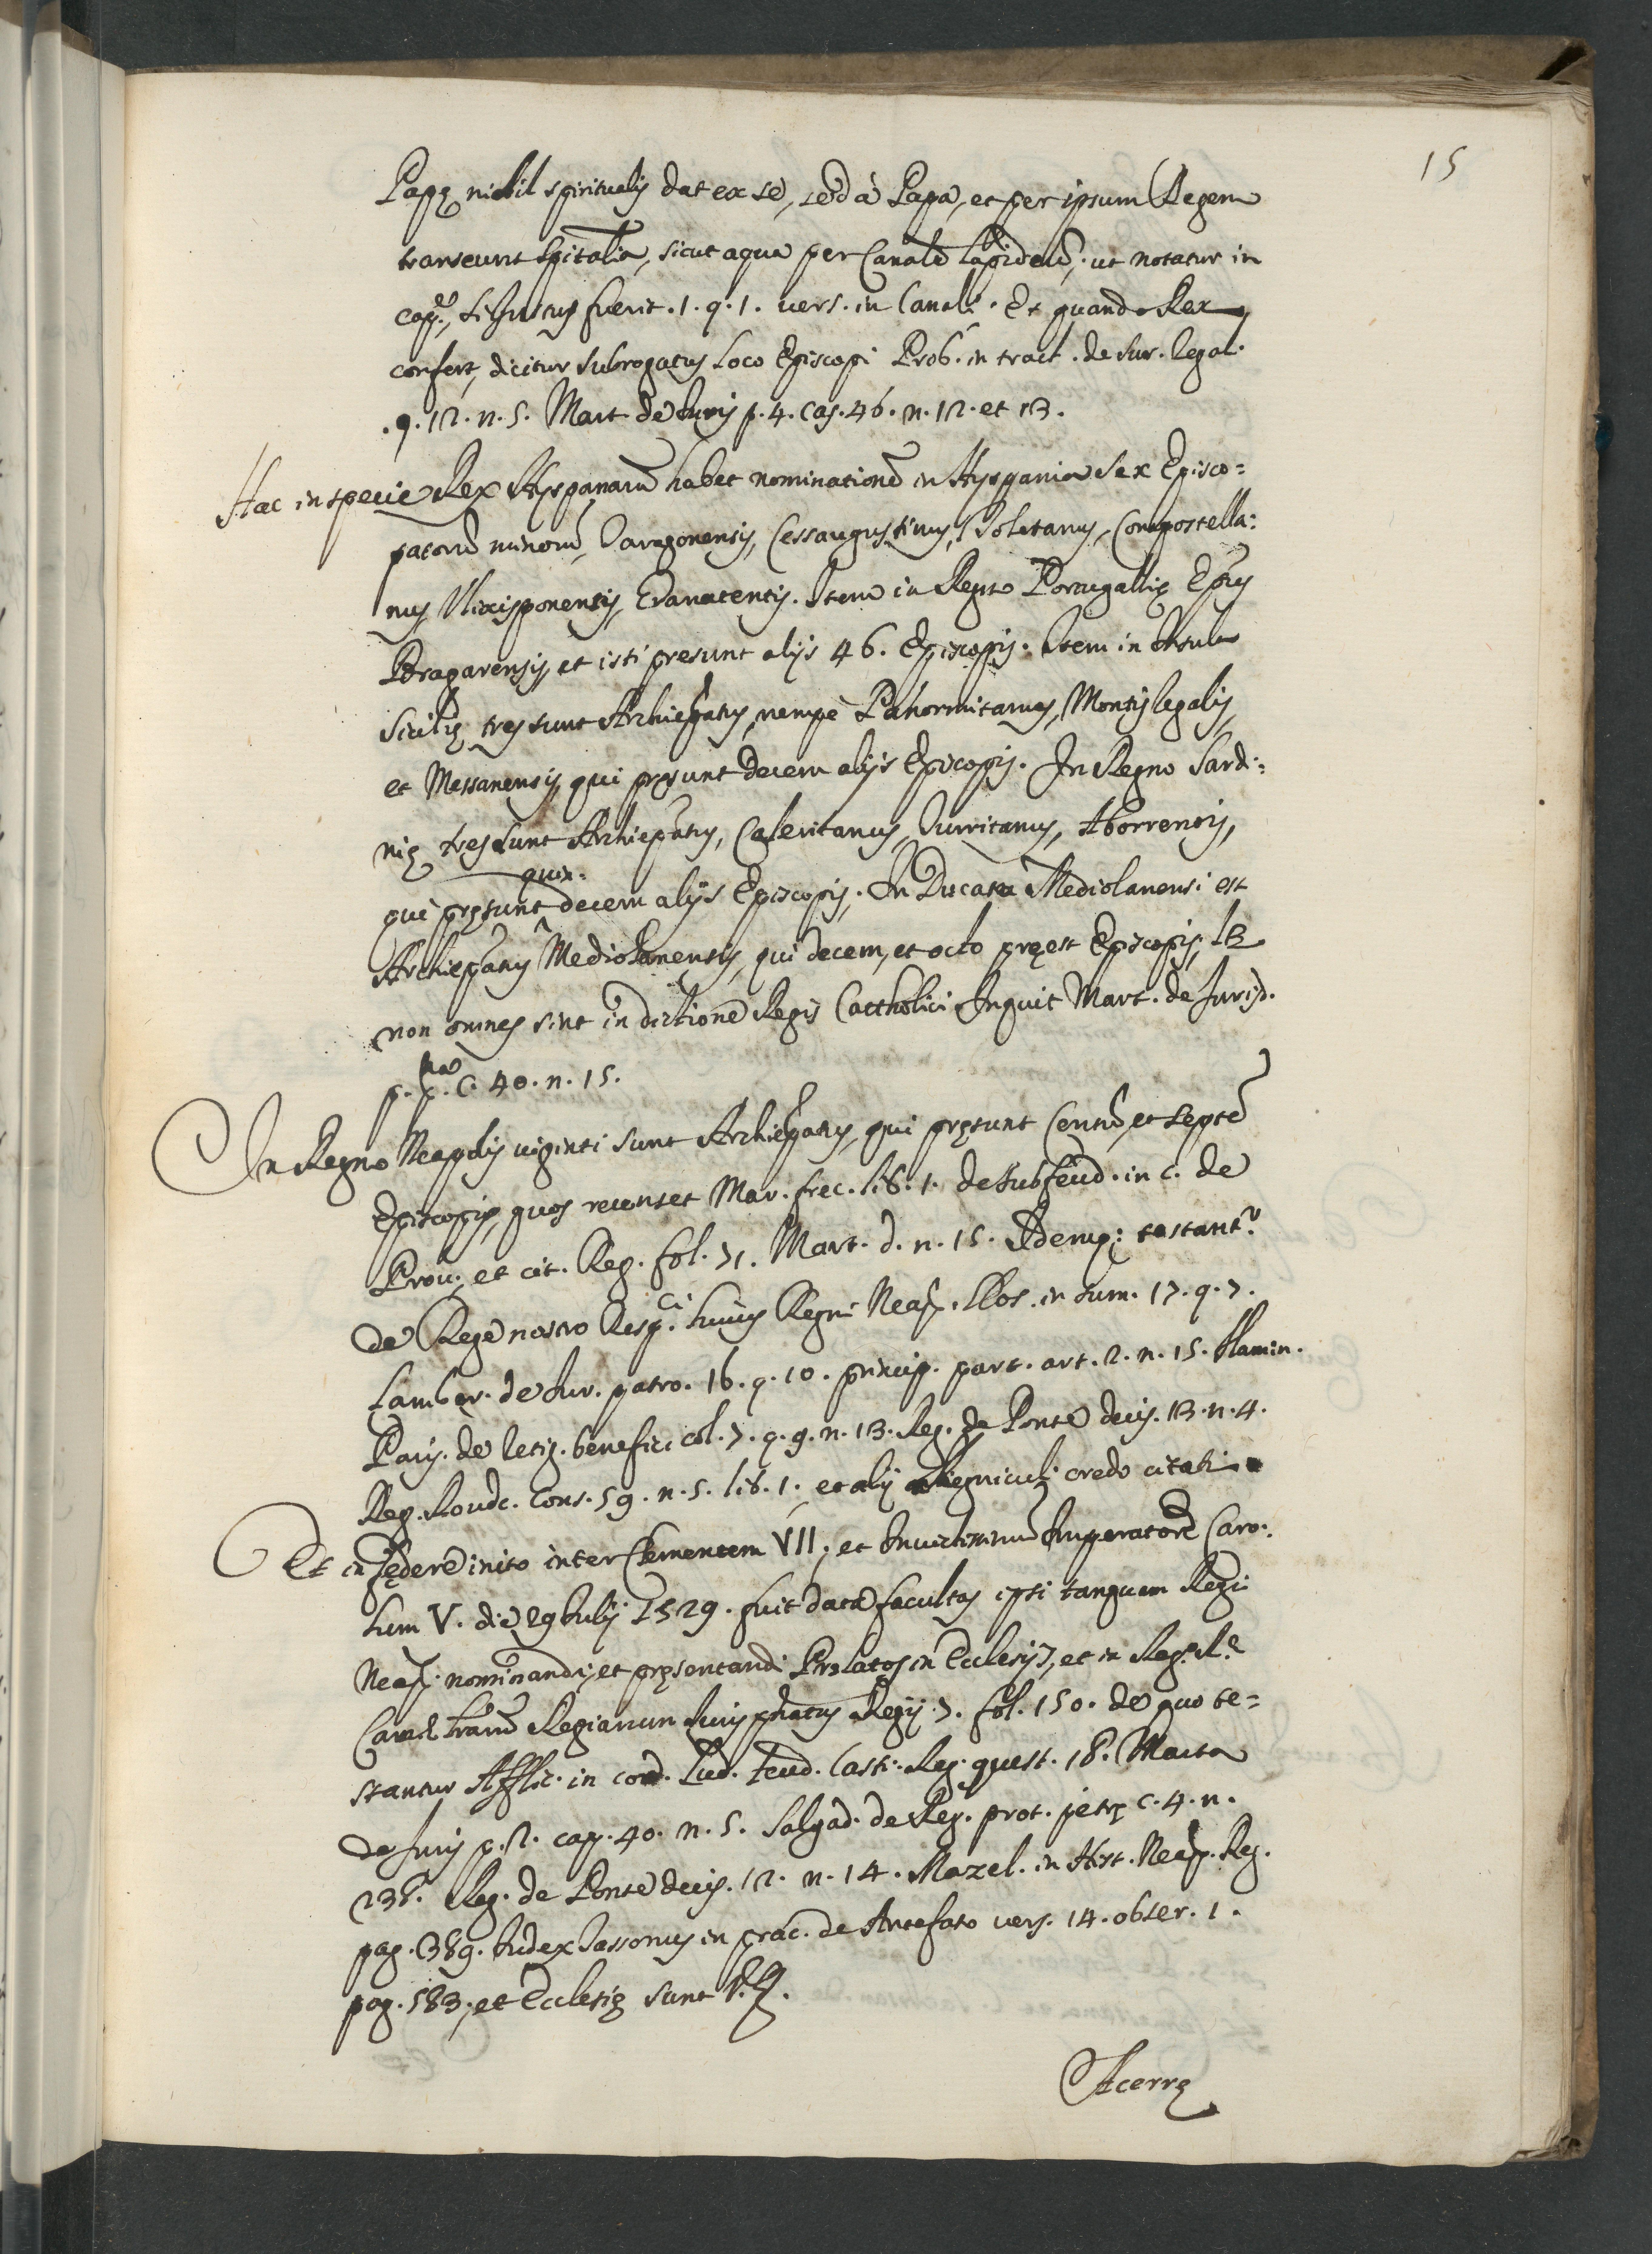 15
Papę nihil spiritualis dat ex se, sed à Papa, et per ipsum Regem
transeunt spitalia, sicut aqua per Canale lapideũ, ut notatur in
cap. si Justus fuerit. 1. q. 1. vers. in Canali. Et quando Rex
confert, dicitur subrogatus loco Episcopi Prob. in tract. de Iur. legal.
q. 12. n. 5. Mart. de Iuris p. 4. Cas. 46. n. 12. et 13.
Hac in specie Rex Hyspanarũ habet nominationẽ in Hyspania sex Episco=
patorũ minorũ, Taragonensis, Cessaugustinus, Toletanus, Compostella=
nus, Vlixisponensis, Granatensis. Item in Regno Portugallię Epũs
Bragarensis, et isti presunt alijs 46. Episcopis. Item in Insula
Sicilię tres sunt Archiepatus, nempè Panormitanus, Montis legalis,
et Messanensis, qui pręsunt decem alijs Episcopis. In Regno Sardi=
nię tres sunt Archiepatus, Caleritanus, Turritanus, Aborrensis,
qui pręsunt quin=decem alijs Episcopis. In Ducatu Mediolanensi est
Archiepatus Mediolanensis, qui decem, et octo pręest Episcopis, lꝫ
non omnes sint in dictione Regis Cattholici Inquit Mart. de Jurisd.
p. pa. C. 40. n. 15.
In Regno Neapolis viginti sunt Archiepatus, qui pręsunt Centũ, et septẽ
Episcopis, quos recenset Mar. frec. lib. 1. de Subfeud. in c. de
Prou. et cit. Reg. fol. 71. Mart. d. n. 15. Idemq; testant.r
de Rege nostro Resp.ci huius Regni Neap. Hos. in sum. 17. q. 7.
Lamber. de Iur. patro. 16. q. 10. princip. part. art. 2. n. 15. flamin.
Paris. de resig. benefic. col. 7. q. 9. n. 13. Reg. de Ponte decis. 13. n. 4.
Reg. Rouit. Cons. 59. n. 5. lib. 1. et alij Regnicolę credo citati
Et in fędere inito inter Clementem VII, et Inuictissimum Imperatorẽ Caro=
lum V. die 29 Iulij 1529. fuit data facultas ipsi tanquam Regi
Neap. nominandi, et pręsentandi Prelatos in Ecclesijs, et in Reg. R.e
Camerę Literarũ Regiarum Iuris phatus Regij 7. fol. 150. de quo te=
stantur Afflic. in cord. Lud. feud. Casti. Reg. quest. 18. Marta
de Iuris p. 2. cap. 40. n. 5. Salgad. de Reg. prot. p. etę c. 4. n.
238. Reg. de Ponte decis. 12. n. 14. Mazel. in Hist. Neap. Reg.
pag. 389. Iudex Sassonius in prac. de Antefato vers. 14. obser. 1.
pag. 583, et Ecclesię sunt V.Z.
Acerrę